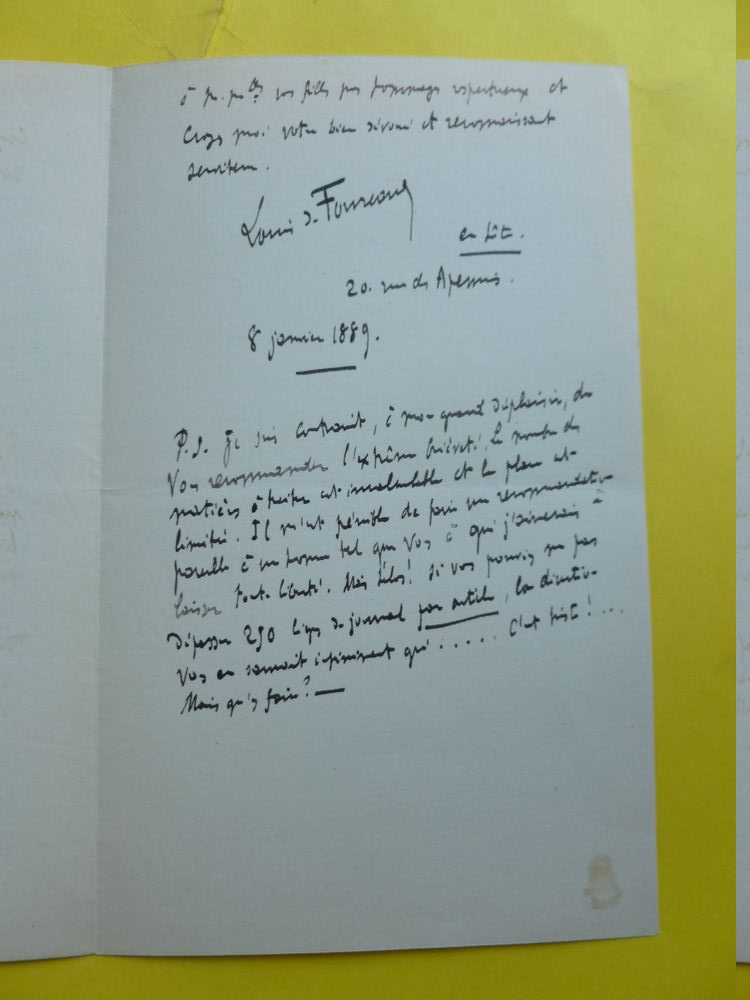 à M.mes vos filles nos hommages respectueux et
croyez moi votre bien dévoué et reconnaissant
serviteur.
Louis de Fourcaud
en hâte.
20. rue des Apennins.
8 janvier 1889.
P.S. Je suis contraint, à mon grand déplaisir, de
vous recommander l'extrême brièveté. Le nombre des
matières à traiter est incalculable et la place est
limitée. Il m'est pénible de faire une recommandation
pareille à un homme tel que vous à qui j'aimerais à
laisser toute liberté. Mais hélas! si vous pouviez ne pas
dépasser 250 lignes de journal par article, la direction
vous en saurait infiniment gré..... C'est triste!...
Mais qu'y faire? —